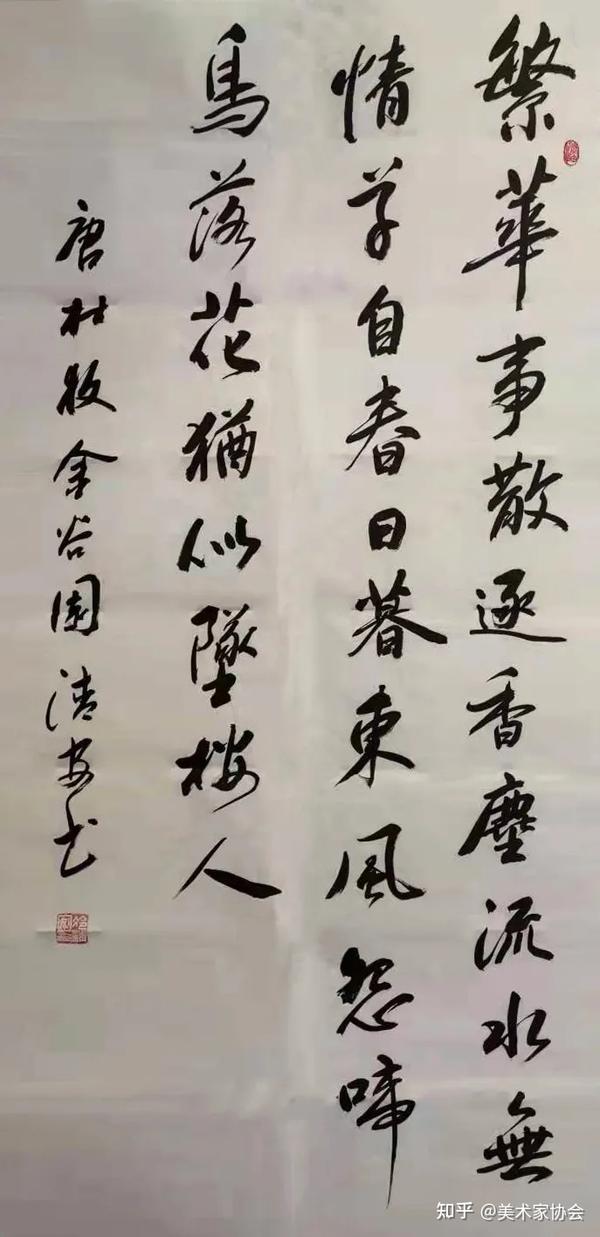 繁華事散逐香塵流水無
情草自春日暮東風怨啼
鳥落花猶似墜楼人
唐杜牧金谷園清安书
知乎 @美术家协会